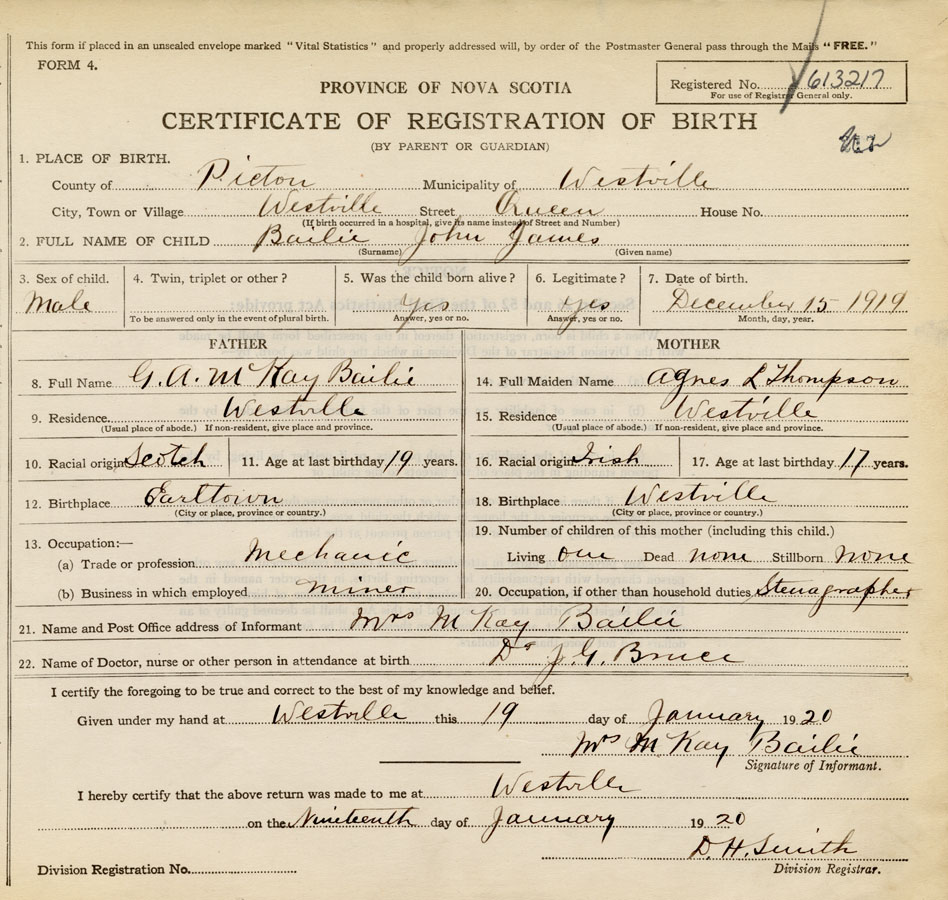 This form if placed in an unsealed envelope marked "Vital Statistics" and properly addressed will, by order of the Postmaster General pass through the Mails "FREE."
FORM 4.
Registered No. 613217
For use of Registrar General only.
PROVINCE OF NOVA SCOTIA
CERTIFICATE OF REGISTRATION OF BIRTH
(BY PARENT OR GUARDIAN)
1. PLACE OF BIRTH.
County of Pictou Municipality of Westville
City, Town or Village Westville Street Queen House No.
(If birth occurred in a hospital, give its name instead of Street and Number)
2. FULL NAME OF CHILD Bailie John James
(Surname) (Given name)
3. Sex of child. 4. Twin, triplet or other? 5. Was the child born alive? 6. Legitimate? 7. Date of birth.
Male Yes Yes December 15 1919
To be answered only in the event of plural birth. Answer, yes or no. Answer, yes or no. Month, day, year.
FATHER
8. Full Name G. A. McKay Bailie
9. Residence. Westville
(Usual place of abode.) If non-resident, give place and province.
10. Racial origin Scotch 11. Age at last birthday 19 years.
12. Birthplace Earltown
(City or place, province or country.)
13. Occupation:—
(a) Trade or profession Mechanic
(b) Business in which employed miner
MOTHER
14. Full Maiden Name Agnes L Thompson
15. Residence Westville
(Usual place of abode.) If non-resident, give place and province.
16. Racial origin Irish 17. Age at last birthday 17 years.
18. Birthplace Westville
(City or place, province or country.)
19. Number of children of this mother (including this child.)
Living one Dead none Stillborn none
20. Occupation, if other than household duties Stenagrapher
21. Name and Post Office address of Informant Mrs McKay Bailie
22. Name of Doctor, nurse or other person in attendance at birth Dr J. G. Bruce
I certify the foregoing to be true and correct to the best of my knowledge and belief.
Given under my hand at Westville this 19 day of January 1920
Mrs McKay Bailie
Signature of Informant.
I hereby certify that the above return was made to me at Westville
on the Nineteenth day of January 1920
D. H. Smith
Division Registration No. Division Registrar.